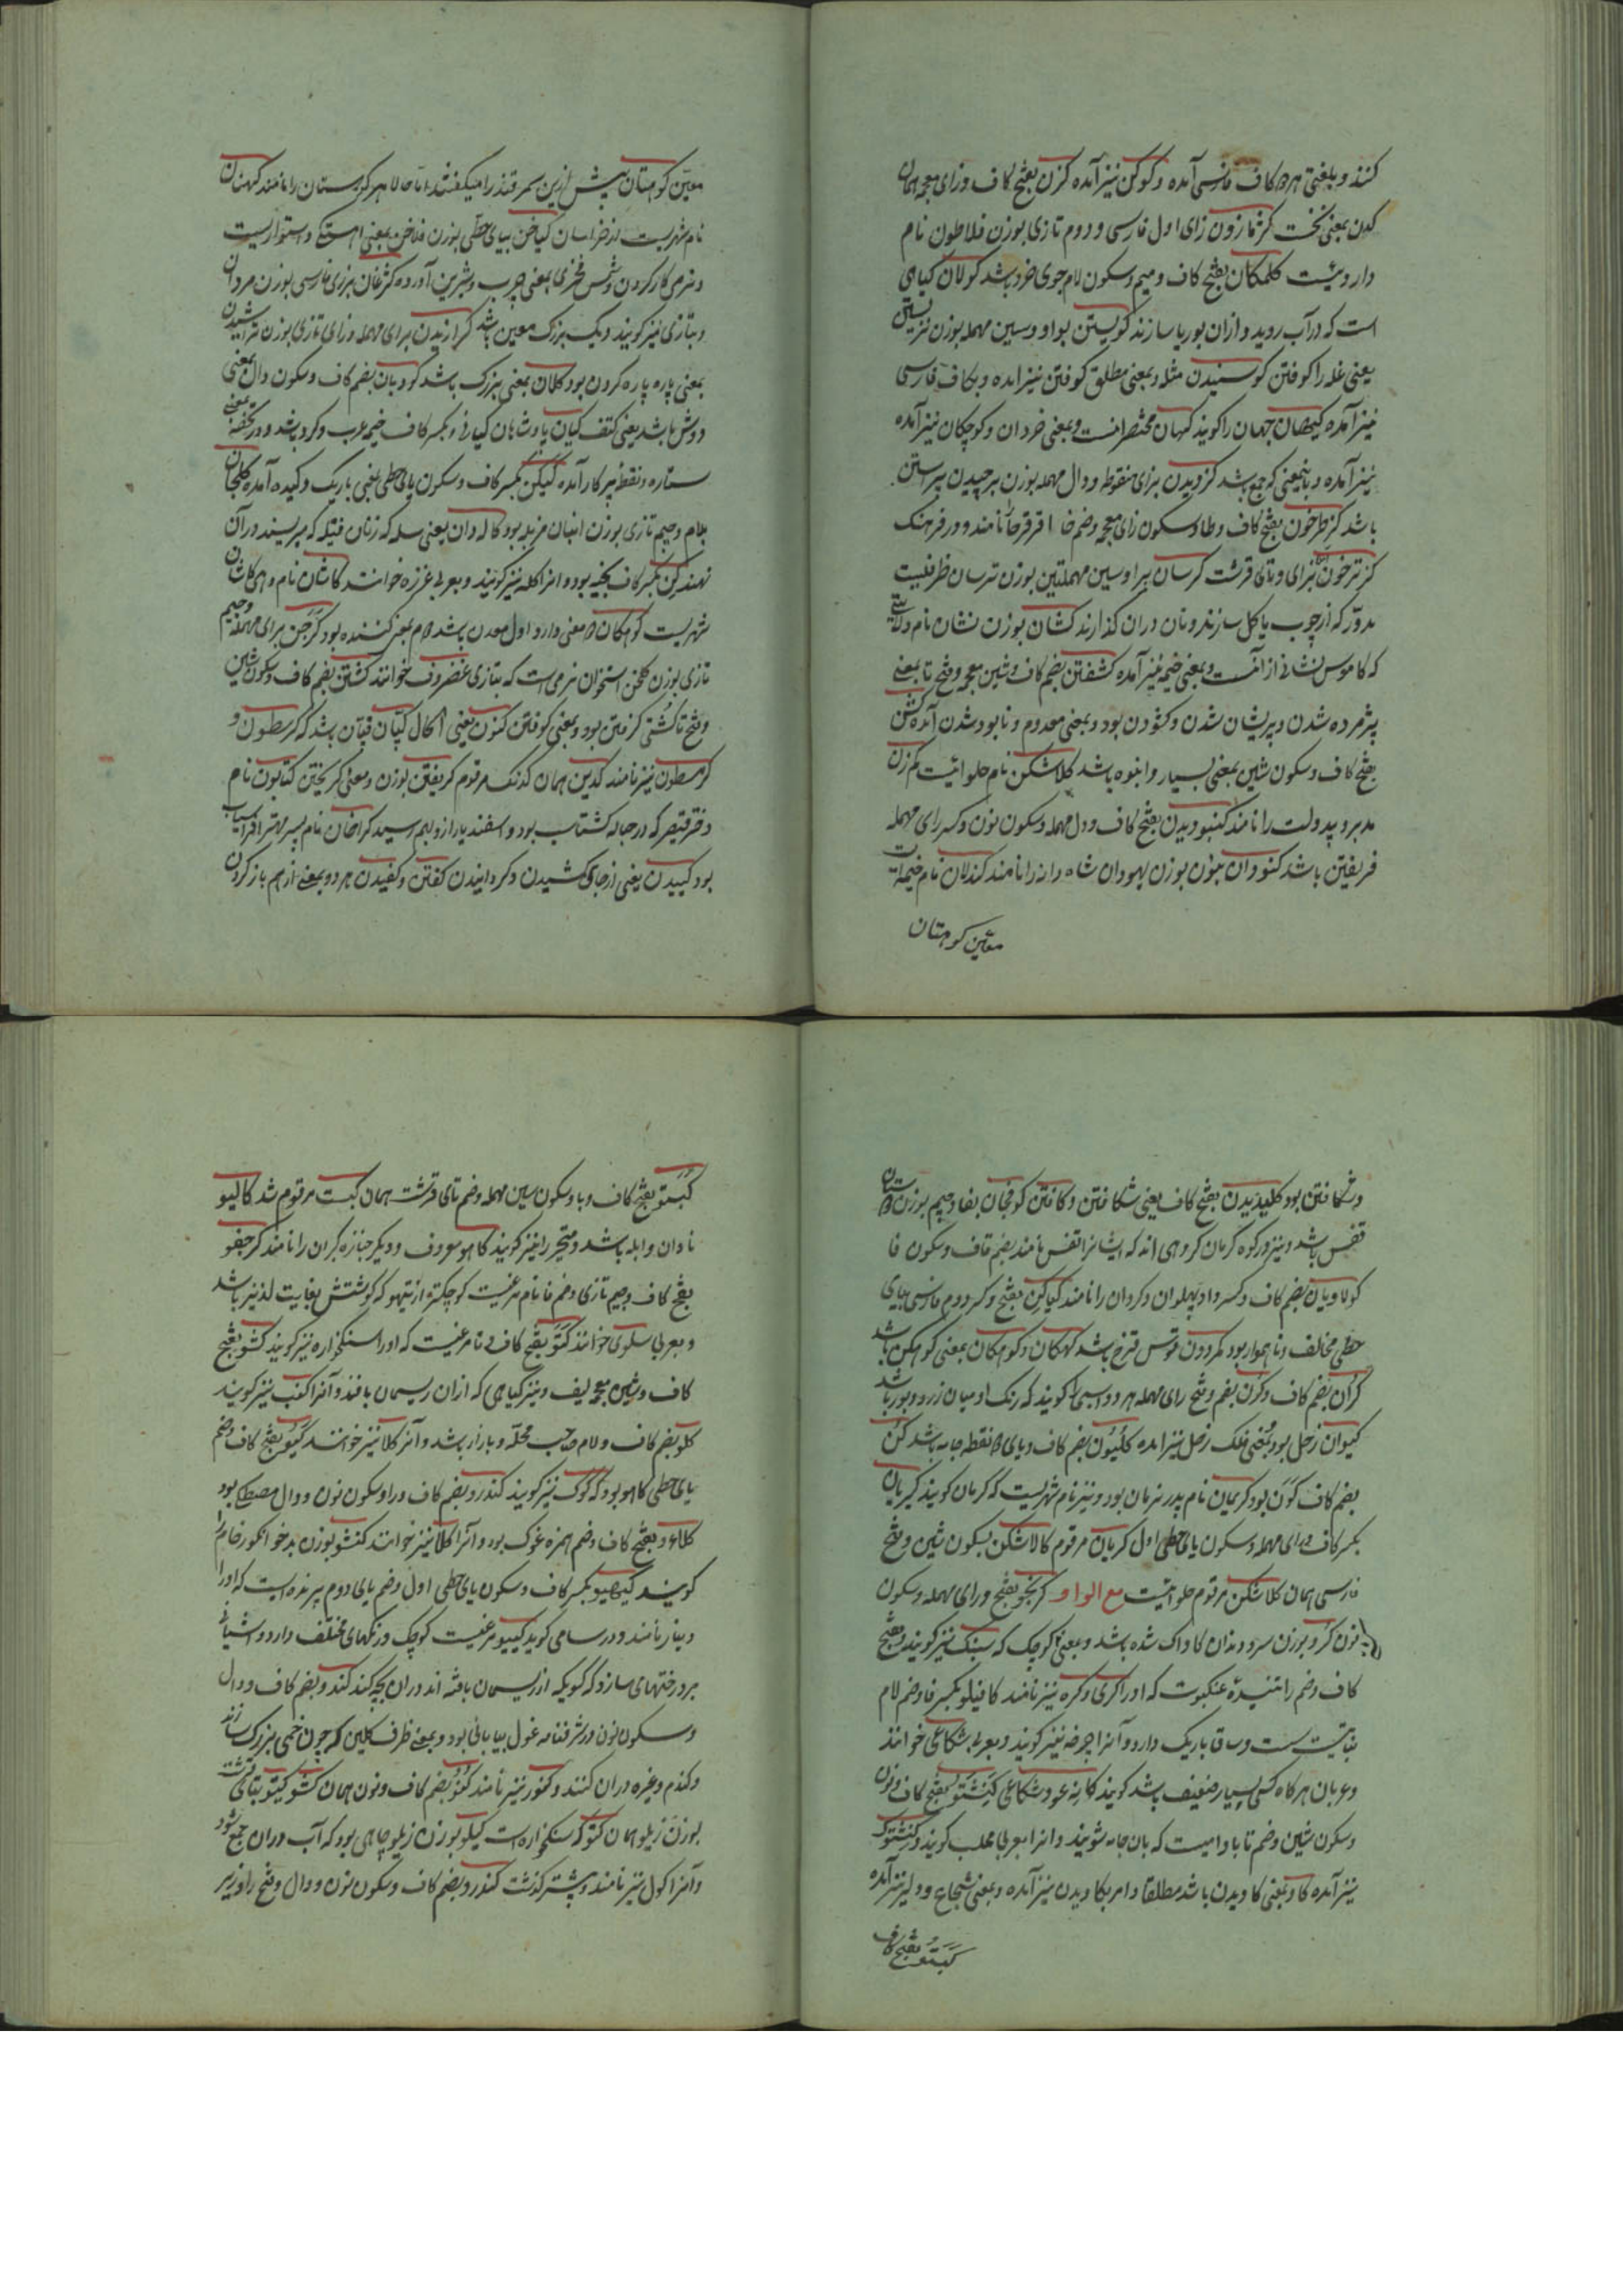 کنند و بلغتی هر دو کاف فارسی آمده و کوکن نیز آمده کزن بفتح کاف و زای معجمه همان
کدن بمعنی نخست کزمازون زای اول فارسی و دوم تازی بوزن فلاطون نام
داروئیست کلمکان بفتح کاف و میم و سکون لام جوی خرد باشد کولان کیاهی
است که در آب روید و ازان بوریا سازند کویستن بواو و سین مهمله بوزن نزیستن
یعنی غله را کوفتن کوسیدن مثله و بمعنی مطلق کوفتن نیز آمده و بکاف فارسی
نیز آمده کیهان جهان را کویند کهان مختصر انست و بمعنی خردان و کوچکان نیز آمده
نیز آمده و باینمعنی که جمع باشد کزدیدن بزای منقوطه و دال مهمله بوزن برچیدن
باشد کزطرخون بفتح کاف و طا و سکون زای معجمه و ضم خا اقرقرحا نامند و در فرهنک
کزترخون بزای و تای قرشت کرسان برا و سین مهملتین بوزن ترسان ظرفیست
مدور که از چوب یا کل سازند و نان دران کذارند کشان بوزن نشان نام ولایتی
که کاموس نشانی از انست و بمعنی خیمه نیز آمده کشفتن بضم کاف و شین معجمه و فتح تا بمعنی
پژمرده شدن و پریشان شدن و کشودن بود و بمعنی معدوم و نابود شدن آمده کشن
بفتح کاف و سکون شین بمعنی بسیار و انبوه باشد کلاشکن نام حلوائیست کم زن
مدبر و بیدولت را نامند کنبوریدن بفتح کاف و دال مهمله و سکون نون و کسر رای مهمله
فریفتن باشد کنودان بنون بوزن یهودان شاه دانه را نامند کندلان نام خیمه است
معین کوهستان
معین کوهستان پیش ازین سمرقند را میکفتند اما حالا هر کوهستان را نامند کهستان
نام شهریست از خراسان کیاخن بیای حطی بوزن فلاخن بمعنی اهستکی و استواریست
و نرمی کار کردن و شمس فخری بمعنی چرب و شیرین آورده کژغان بزای فارسی بوزن مردان
و بتازی نیز کویند دیک بزرک معین باشد کرازیدن برای مهمله و زای تازی بوزن تراشیدن
بمعنی پاره پاره کردن بود کلان بمعنی بزرک باشد کودبان بضم کاف و سکون دال بمعنی
دوش باشد یعنی کتف کیان پادشاهان کیانی و بکسر کاف خیمه عرب و کرد باشد و در تحفه بمعنی
ستاره و نقطه پرکار آمده کیکن بکسر کاف و سکون یای حطی بمعنی باریک و کیده آمده کلجان
بلام و جیم تازی بوزن انبان مزبله بود کاله دان یعنی سله که زنان فتیله که میریسند در آن
نهند کن بکسر کاف بخیه بود و انرا کله نیز کویند و بعربی غرزه خوانند کاشان نام دهی کاشان
شهریست کوهکان دو معنی دارد اول معدن باشد دوم بمعنی کننده بود کرجن برای مهمله و جیم
تازی بوزن کلخن استخوان نرمی است که بتازی غضروف خوانند کشتن بضم کاف و سکون شین
و فتح تا کشتی کرفتن بود و بمعنی کوفتن کنون یعنی اکال کپان قپان باشد که کرسطون و
کرسطون نیز نامند کدین همان کدنک مرقوم کریفتن بوزن و معنی کریختن کتابون نام
دختر قیصر که در حباله کشتاسب بود و اسفندیار ازو بهم رسید کراخان نام پسر مهتر افراسیاب
بود کیبیدن یعنی از جای کشیدن و کردانیدن کفتن و کفیدن هر دو بمعنی از هم باز کردن
و شکافتن بود کلیدیدن بفتح کاف یعنی شکافتن و کافتن کوفجان بفا و جیم بوزن
قفس باشد و نیز در کوه کرمان کروهی اند که ایشانرا قفس نامند بضم قاف و سکون فا
کولاویان بضم کاف و کسر واو پهلوان و کردان را نامند کیاکن بفتح و کسر دوم فارسی بیای
حطی مخالف و ناهموار بود کمردون قوس قزح باشد کهکان و کوهکان بمعنی کوه کن باشد
کران بضم کاف و کرن بضم و فتح رای مهمله هر دو اسبی را کویند که رنک او میان زرد و بور باشد
کیوان زحل بود و بمعنی فلک زحل نیز آمده کلیون بضم کاف و یای دو نقطه جامه باشد کن
بضم کاف کون بود کریمان نام پدر نریمان بود و نیز نام شهریست که کرمان کویند کیریان
بکسر کاف و رای مهمله و سکون یای حطی اول کریان مرقوم کالاشکن بسکون شین و فتح
فارسی همان کلاشکن مرقوم حلوائیست مع الواو کربجو بفتح و رای مهمله و سکون
نون کرو بوزن سرو دندان کاواک شده باشد و بمعنی کوچک که سنبک نیز کویند و بفتح
کاف و ضم را تنیدهٔ عنکبوت که اورا کری و کره نیز نامند کافیلو بکسر فا و ضم لام
نباتیست و ساق باریک دارد و آنرا چرخه نیز کویند و بعربی شکاعی خوانند
و عربان هرکاه کسی بسیار ضعیف باشد کویند کانه عود شکاعی کنشتو بفتح کاف و نون
و سکون شین و ضم تا با و امیست که بان جامه شویند و انرا بعربی محلب کویند و کنشتوک
نیز آمده کاو بمعنی کاویدن باشد مطلقا و امر بکاویدن نیز آمده و بمعنی شجاع و دلیر نیز آمده
کبستو بفتح کاف
کبستو بفتح کاف و با و سکون سین مهمله و ضم تای قرشت همان کبست مرقوم شد کالیو
نادان و ابله باشد و متحیر را نیز کویند کاهو معروف و دیکر جنازه کبران را نامند کرجفو
بفتح کاف و جیم تازی و ضم فا نام مرغیست کوچکتر از تیهو که کوشتش بغایت لذیذ باشد
و بعربی سلوی خوانند کتو بفتح کاف و تا مرغیست که اورا سنکخواره نیز کویند کشو بفتح
کاف و شین معجمه لیف و نیز کیاهی که ازان ریسمان بافند و آنرا کنب نیز کویند
کلو بضم کاف و لام صاحب محله و بازار باشد و آنرا کلا نیز خوانند کیو بفتح کاف و ضم
یای حطی کاهو بود که کوک نیز کویند کندرو بضم کاف و را و سکون نون و دال مصطکی بود
کلاءو بفتح کاف و ضم همزه غوک بود و آنرا کلا نیز خوانند کنشو بوزن بدخو انکور خام را
کویند کیهیو بکسر کاف و سکون یای حطی اول و ضم یای دوم پرنده ایست که اورا
دینار نامند و در سامی کوید کیپو مرغیست کوچک و رنکهای مختلف دارد و آشیانی
بر درختهای سازد که کویکه از ریسمان بافته اند دران بچه کند کندو بضم کاف و دال
و سکون نون در شرفنامه غول بیابانی بود و بمعنی ظرف کلین که چون خمی بزرک سازند
و کندم و غیره دران کنند و کنور نیز نامند کنو بضم کاف و نون همان کشو کیتو بتای قرشت
بوزن زیلو همان کتو که سنکخواره است کیلو بوزن زیلو چاهی بود که آب دران جمع شود
و آنرا کول نیز نامند و پیشتر کذشت کندرو بضم کاف و سکون نون و دال و فتح را وزیر